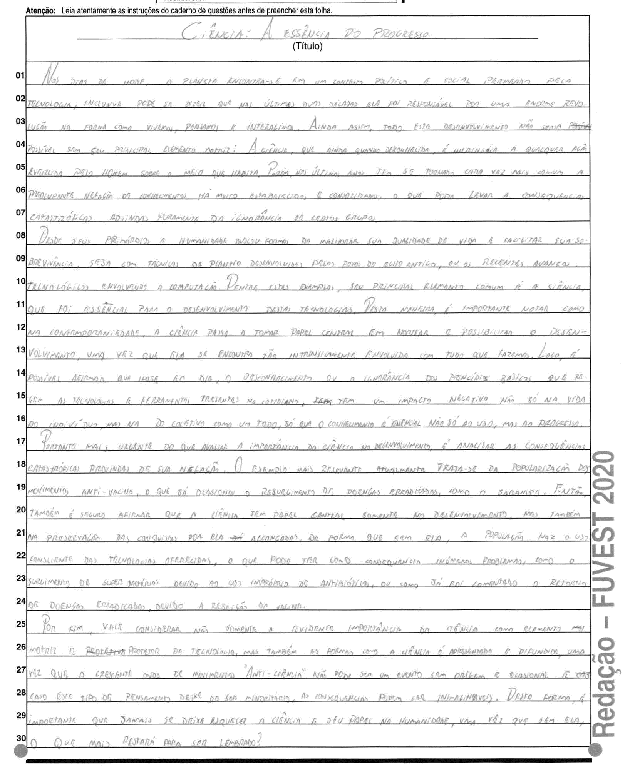 Atenção: Leia atentamente as instruções do caderno de questões antes de preencher esta folha.
CIÊNCIA: A ESSÊNCIA DO PROGRESSO
(Título)
01 NOS DIAS DE HOJE, O PLANETA ENCONTRA-SE EM UM CONTEXTO POLÍTICO E SOCIAL PERMEADO PELA
02 TECNOLOGIA, INCLUSIVE PODE SE DIZER QUE NAS ÚLTIMAS DUAS DÉCADAS ELA FOI RESPONSÁVEL POR UMA ENORME REVO-
03 LUÇÃO NA FORMA COMO VIVEMOS, PENSAMOS E INTERAGIMOS. AINDA ASSIM, TODO ESTE DESENVOLVIMENTO NÃO SERIA
04 POSSÍVEL SEM SEU PRINCIPAL ELEMENTO MOTRIZ: A CIÊNCIA, QUE AINDA QUANDO DESCONHECIDA, É NECESSÁRIA A QUALQUER AÇÃO
05 EXERCIDA PELO HOMEM SOBRE O MEIO QUE HABITA. PORÉM, NOS ÚLTIMOS ANOS TEM SE TORNADO CADA VEZ MAIS COMUM A
06 PREOCUPANTE NEGAÇÃO DE CONHECIMENTOS HÁ MUITO ESTABELECIDOS E CONSOLIDADOS, O QUE PODE LEVAR A CONSEQUÊNCIAS
07 CATASTRÓFICAS ADVINDAS PURAMENTE DA IGNORÂNCIA DE CERTOS GRUPOS.
08 DESDE SEUS PRIMÓRDIOS A HUMANIDADE BUSCOU FORMAS DE MELHORAR SUA QUALIDADE DE VIDA E FACILITAR SUA SO-
09 BREVIVÊNCIA, SEJA COM TÉCNICAS DE PLANTIO DESENVOLVIDAS PELOS POVOS DO EGITO ANTIGO, OU OS RECENTES AVANÇOS
10 TECNOLÓGICOS ENVOLVENDO A COMPUTAÇÃO. DENTRE ESTES EXEMPLOS, SEU PRINCIPAL ELEMENTO COMUM É A CIÊNCIA,
11 QUE FOI ESSÊNCIAL PARA O DESENVOLVIMENTO DESTAS TECNOLOGIAS. DESTA MANEIRA, É IMPORTANTE NOTAR COMO
12 NA CONTEMPORANEIDADE, A CIÊNCIA PASSA A TOMAR PAPEL CENTRAL EM APOIAR E POSSIBILITAR O DESEN-
13 VOLVIMENTO, UMA VEZ QUE ELA SE ENCONTRA TÃO INTRINSICAMENTE ENVOLVIDA COM TUDO QUE FAZEMOS. LOGO, É
14 POSSÍVEL AFIRMAR QUE HOJE EM DIA, O DESCONHECIMENTO OU A IGNORÂNCIA DOS PRINCÍPIOS BÁSICOS QUE RE-
15 GEM AS TECNOLOGIAS E FERRAMENTAS PRESENTES NO COTIDIANO, TEM UM IMPACTO NEGATIVO NÃO SÓ NA VIDA
16 DO INDIVÍDUO, MAS NA DO COLETIVO COMO UM TODO, JÁ QUE O CONHECIMENTO É ESSENCIAL NÃO SÓ AO USO, MAS AO PROGRESSO.
17 PORTANTO MAIS URGENTE DO QUE AVALIAR A IMPORTÂNCIA DA CIÊNCIA NO DESENVOLVIMENTO, É ANALISAR AS CONSEQUÊNCIAS
18 CATASTRÓFICAS PROVINDAS DE SUA NEGAÇÃO. O EXEMPLO MAIS RELEVANTE ATUALMENTE TRATA-SE DA POPULARIZAÇÃO DO
19 MOVIMENTO ANTI-VACINA, O QUE ESTÁ CAUSANDO O RESSURGIMENTO DE DOENÇAS ERRADICADAS, COMO O SARAMPO. ENTÃO,
20 TAMBÉM É SEGURO AFIRMAR QUE A CIÊNCIA TEM PAPEL CENTRAL, SOMENTE NO DESENVOLVIMENTO, MAS TAMBÉM
21 NA PRESERVAÇÃO DAS CONQUISTAS POR ELA ALCANÇADAS, DE FORMA QUE SEM ELA, A POPULAÇÃO FAZ O USO
22 CONSCIENTE DAS TECNOLOGIAS OFERECIDAS, O QUE PODE TER COMO CONSEQUÊNCIA INÚMEROS PROBLEMAS, COMO O
23 SURGIMENTO DE DEVIDO AO USO IMPRÓPRIO DE ANTIBIÓTICOS, OU COMO JÁ FOI COMENTADO O RETORNO
24 DE DOENÇAS ERRADICADAS, DEVIDO A REJEIÇÃO DA VACINA.
25 POR FIM, VALE CONSIDERAR NÃO SOMENTE A EVIDENTE IMPORTÂNCIA DA CIÊNCIA COMO ELEMENTO
26 MOTRIZ E PROTETOR DE TECNOLOGIAS, MAS TAMBÉM AS FORMAS COMO A CIÊNCIA É APRESENTADA E DIFUNDIDA, UMA
27 VEZ QUE A CRESCENTE ONDA DE MOVIMENTOS "ANTI-CIÊNCIA" NÃO PODE SER UM EVENTO SEM ORIGEM E OCASIONAL. E
28 CASO ESTE TIPO DE PENSAMENTO DEIXE DE SER MINORITÁRIO, AS CONSEQUÊNCIAS PODEM SER INIMAGINÁVEIS. DESSA FORMA, É
29 IMPORTANTE QUE JAMAIS SE DEIXE ESQUECER A CIÊNCIA E SEU PAPEL NA HUMANIDADE, UMA VEZ QUE SEM ELA,
30 O QUE MAIS RESTARÁ PARA SER LEMBRADO?
Redação – FUVEST 2020